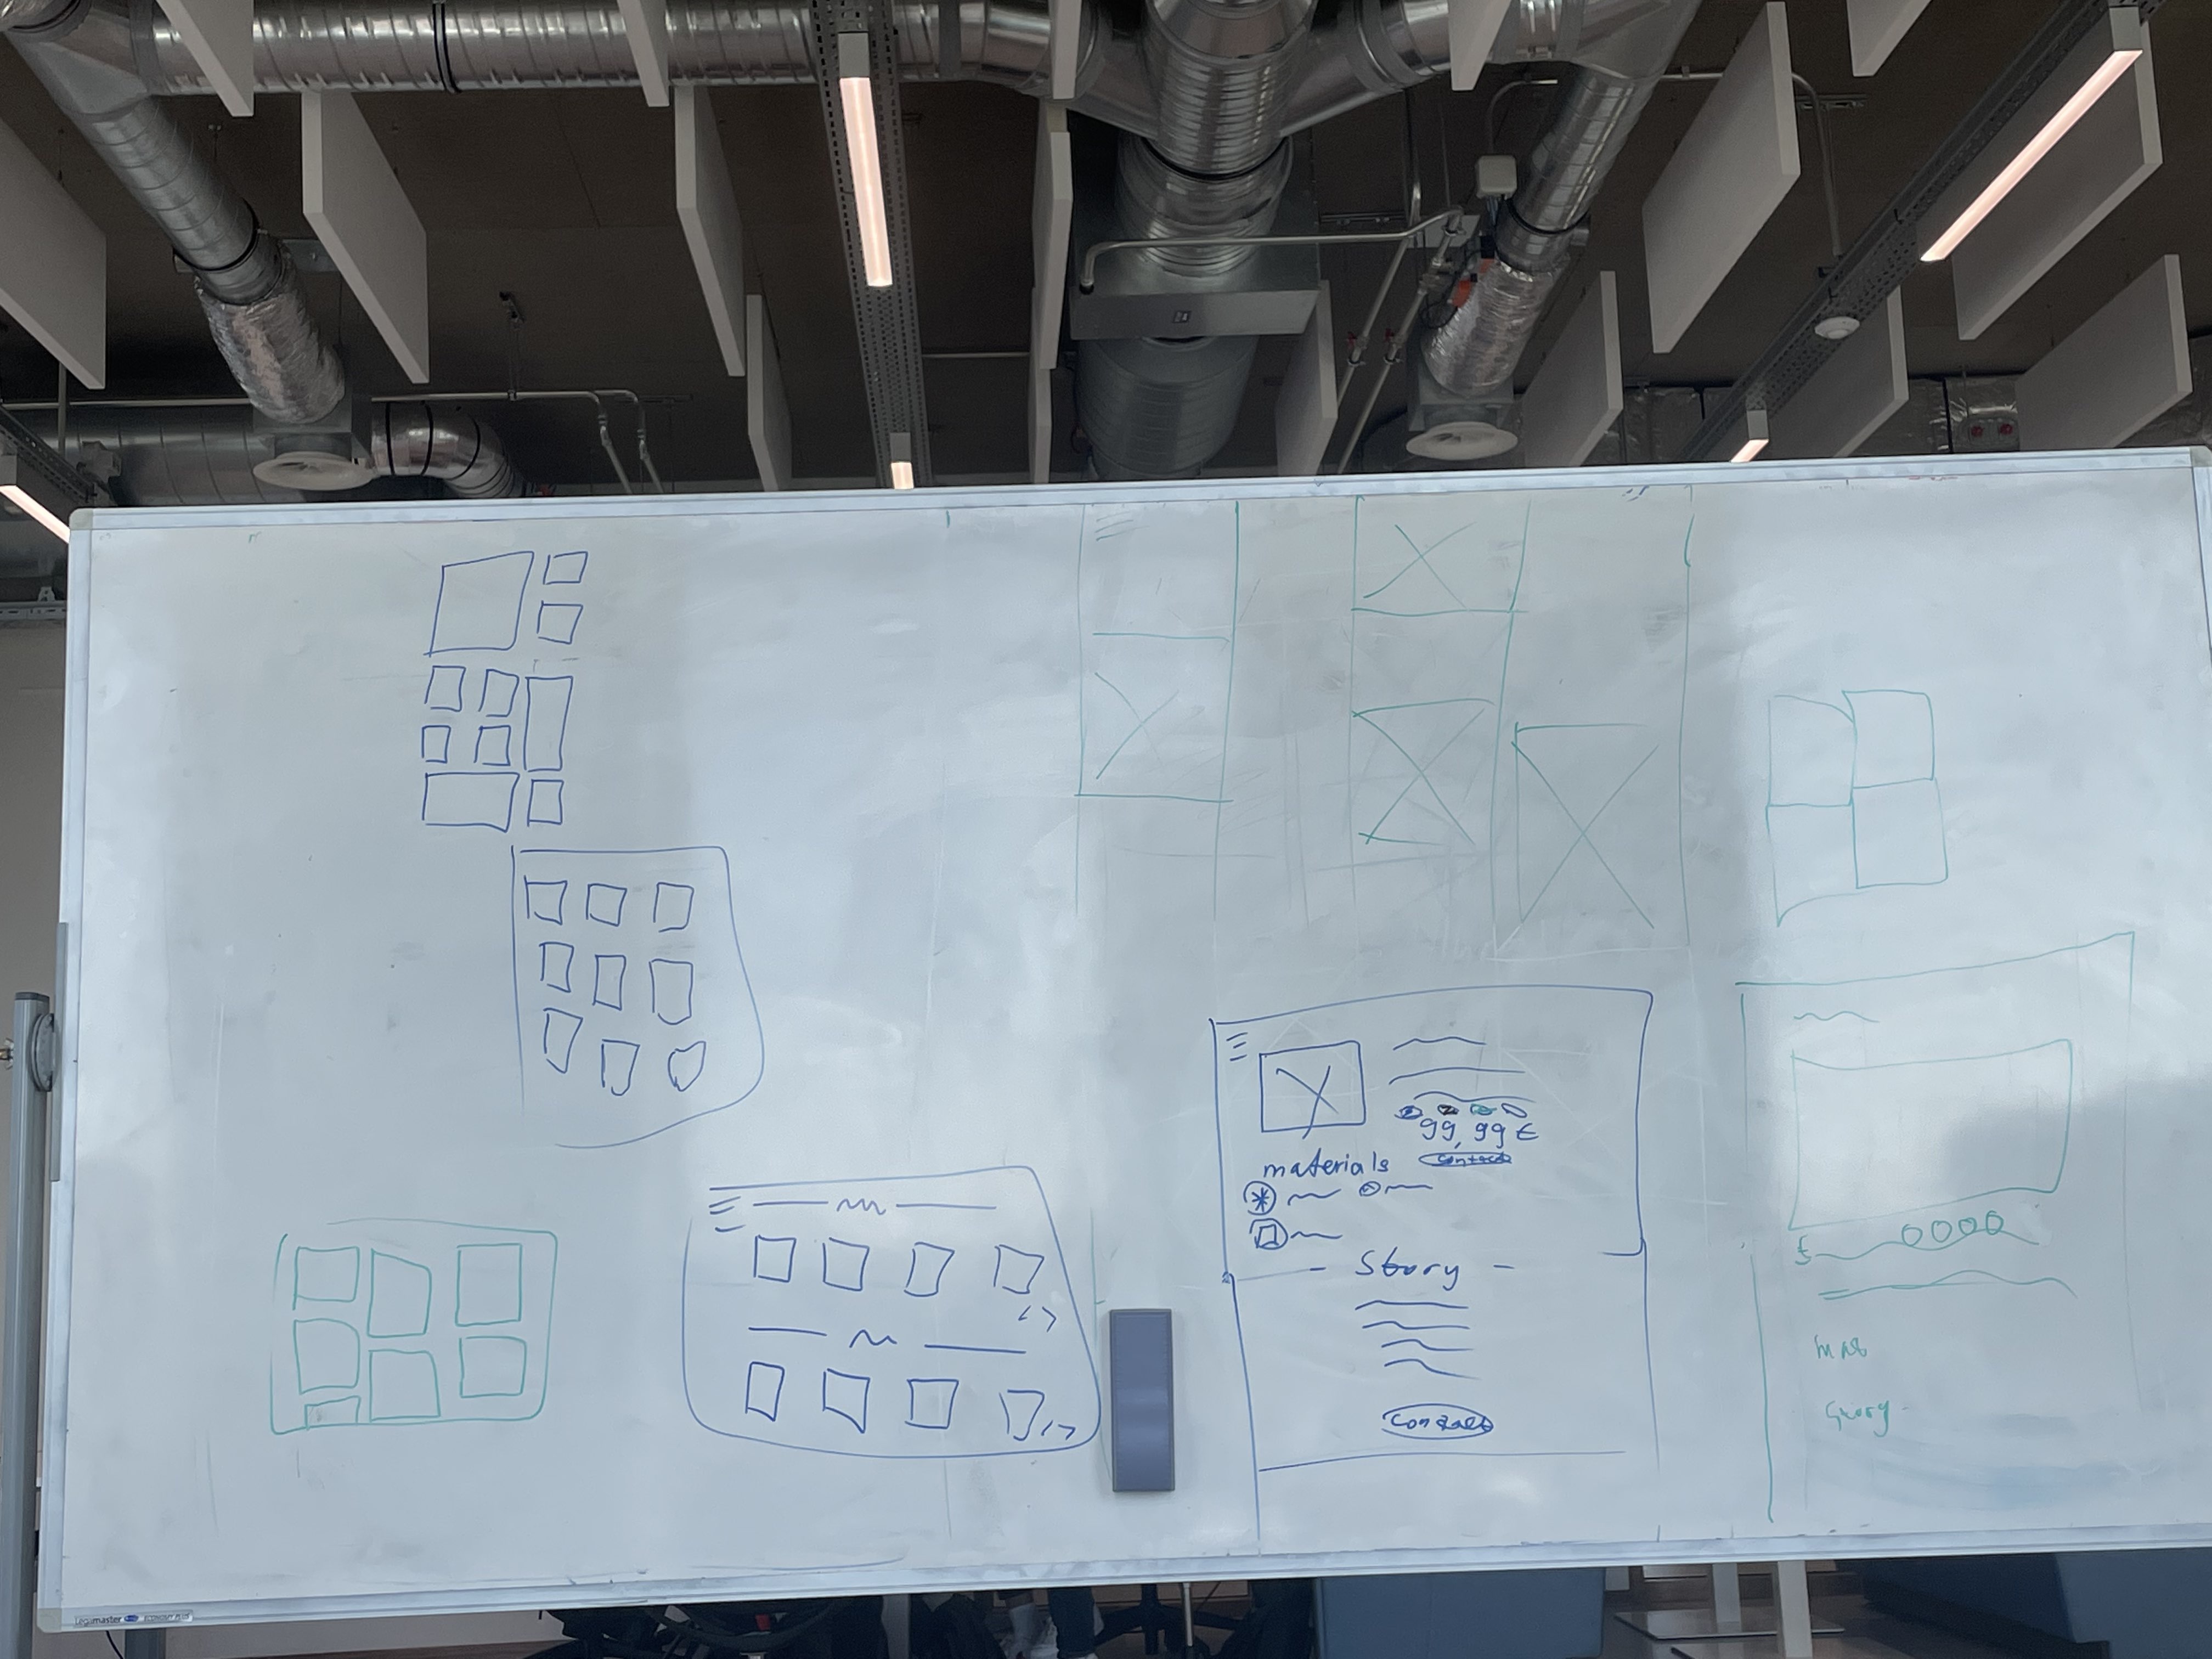 99,99 €
Contact
materials
Story
Contact
€
mat
Story
Legamaster ECONOMY PLUS